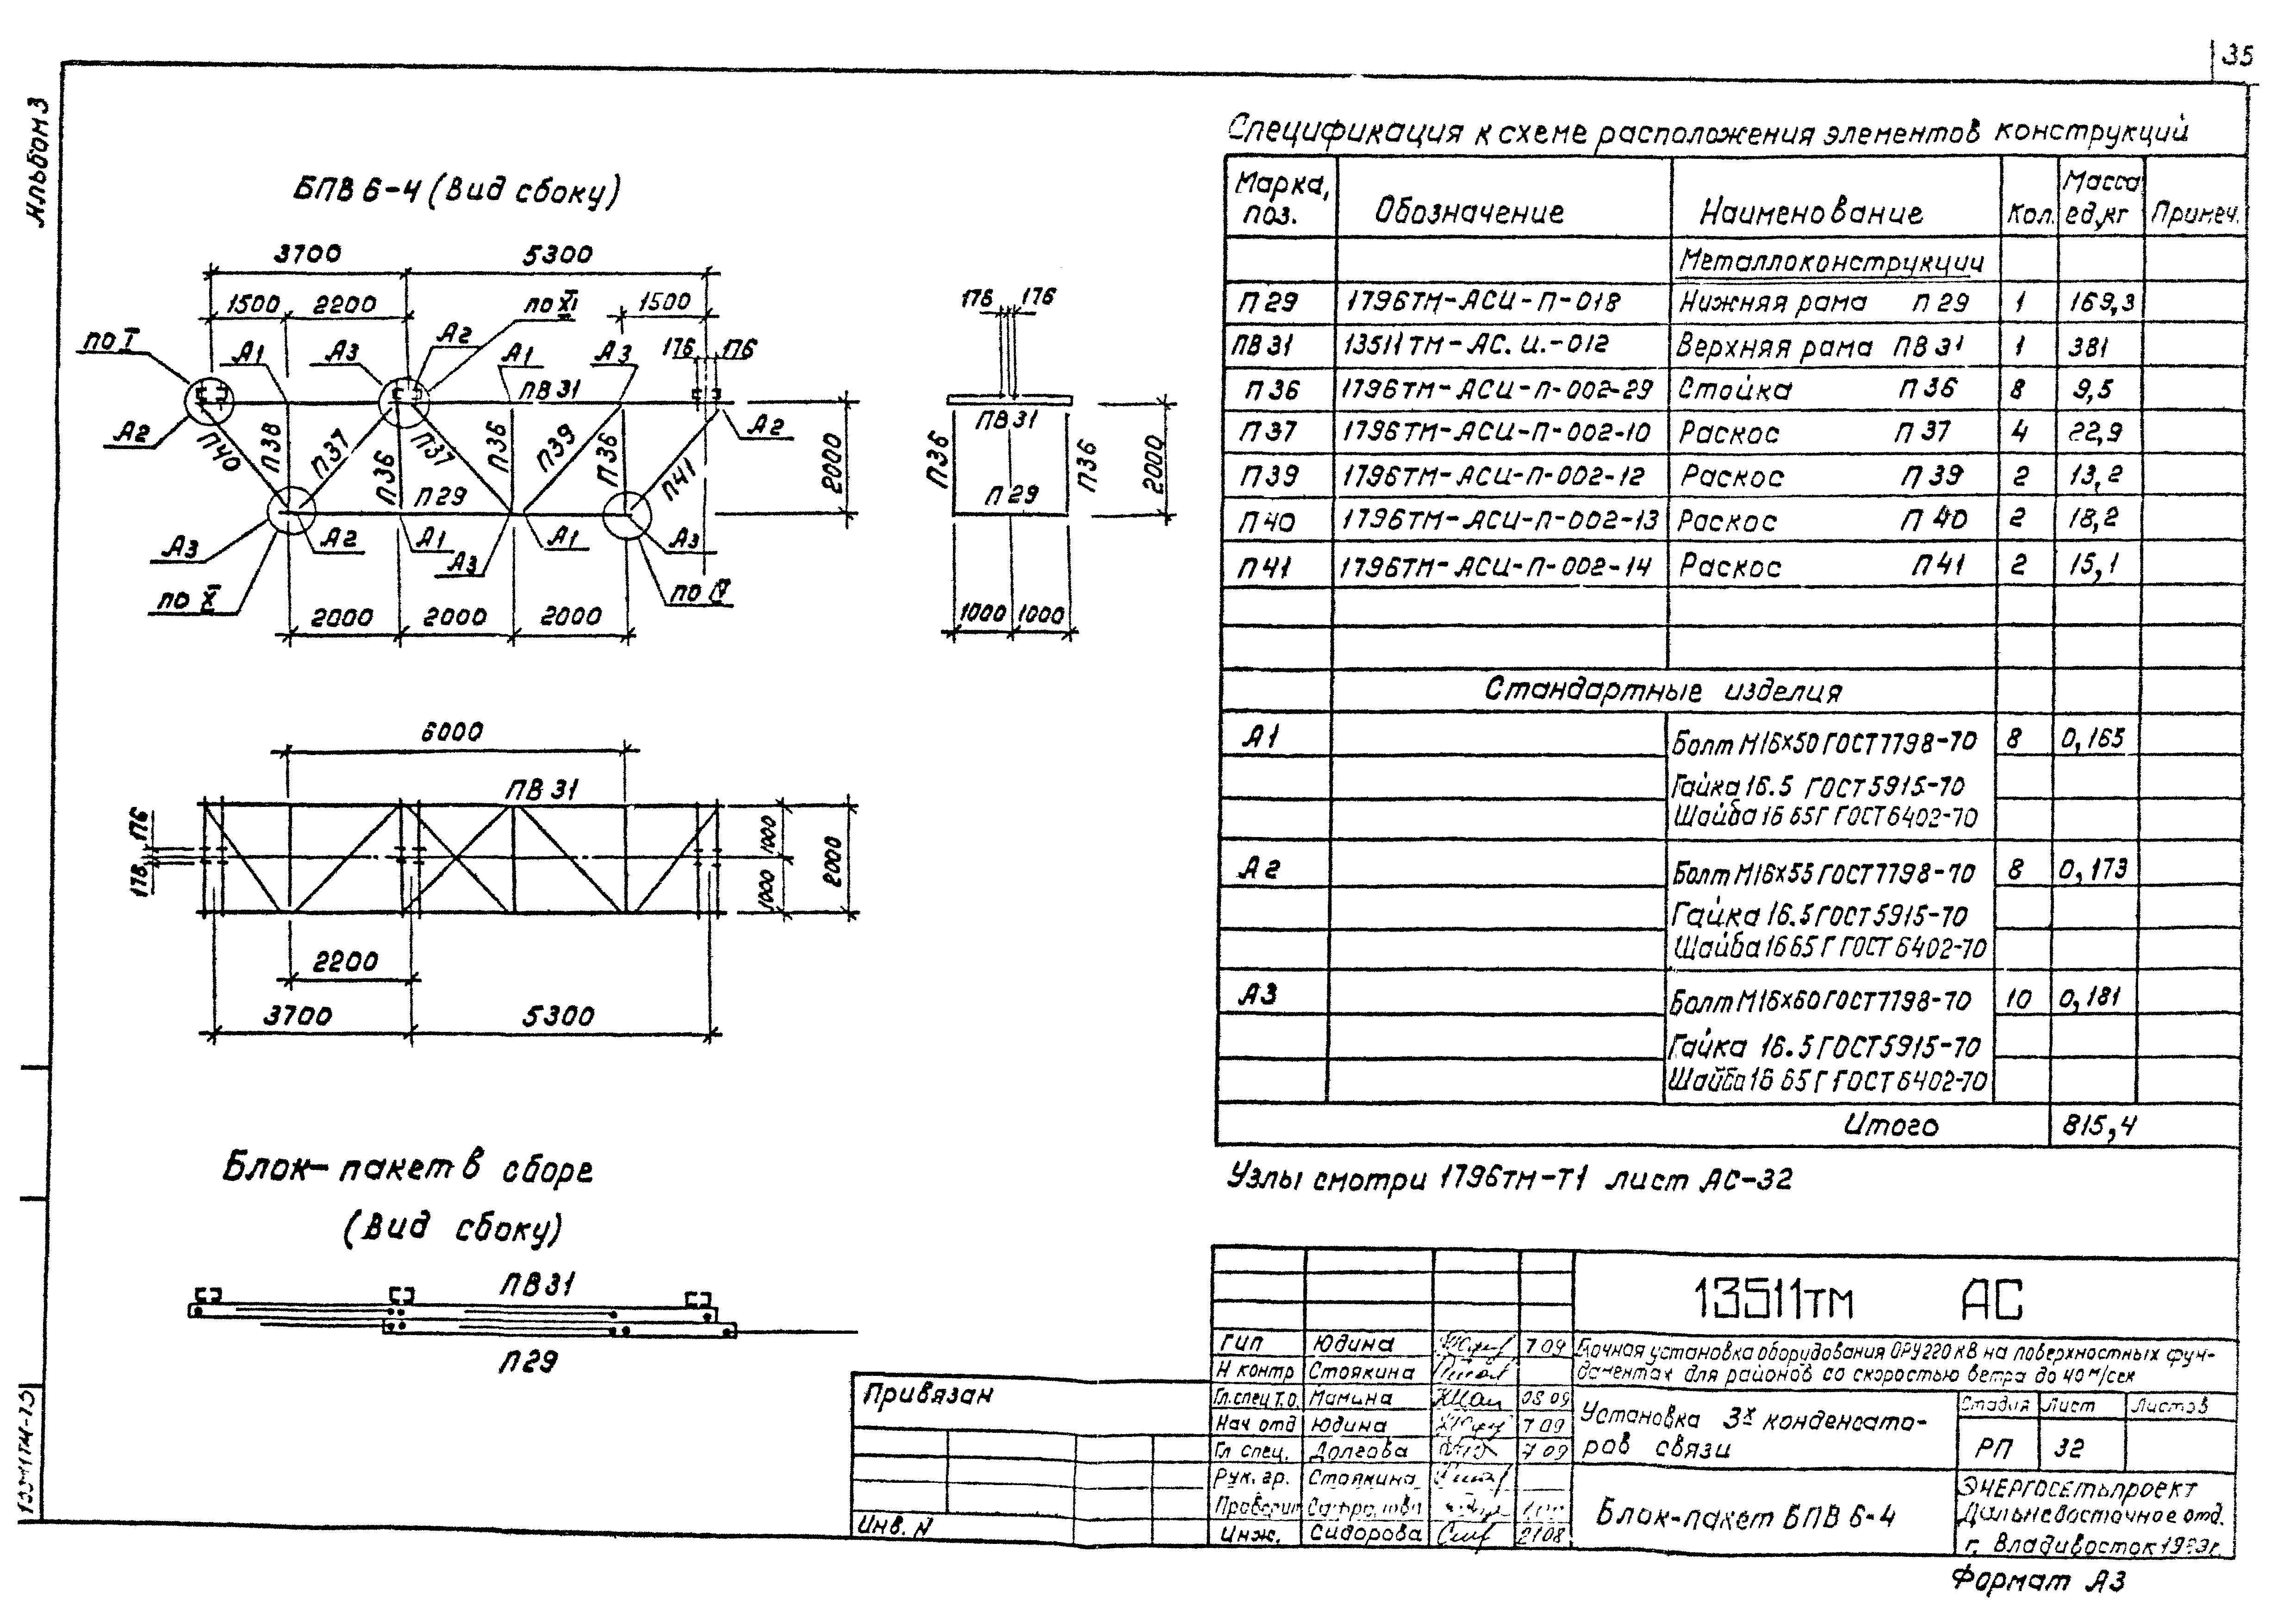 35
Альбом 3
БПВ 6-4 (Вид сбоку)
3700 5300
1500 2200 1500
по I А1 А3 А2 по XI А1 А3 176 176
ПВ 31
А2 П40 П38 П37 П36 П37 П36 П39 П36 П41 А2 2000
П29
А3 А2 А1 А3 А1 А3
по X по IV
2000 2000 2000
176 176
ПВ31
П36 П36 2000
П29
1000 1000
6000
ПВ 31
176 178 1000 1000 2000
2200
3700 5300
Блок-пакет в сборе
(Вид сбоку)
ПВ31
П29
Спецификация к схеме расположения элементов конструкций
Марка, поз. Обозначение Наименование Кол. Масса ед,кг Примеч.
Металлоконструкции
П29 1796ТМ-АСИ-П-018 Нижняя рама П29 1 169,3
ПВ31 13511ТМ-АС.И.-012 Верхняя рама ПВ31 1 381
П36 1796ТМ-АСИ-П-002-29 Стойка П36 8 9,5
П37 1796ТМ-АСИ-П-002-10 Раскос П37 4 22,9
П39 1796ТМ-АСИ-П-002-12 Раскос П39 2 13,2
П40 1796ТМ-АСИ-П-002-13 Раскос П40 2 18,2
П41 1796ТМ-АСИ-П-002-14 Раскос П41 2 15,1
Стандартные изделия
А1 Болт М16х50 ГОСТ7798-70 8 0,165
Гайка 16.5 ГОСТ5915-70
Шайба 16 65Г ГОСТ6402-70
А2 Болт М16х55 ГОСТ7798-70 8 0,173
Гайка 16.5 ГОСТ5915-70
Шайба 16 65Г ГОСТ 6402-70
А3 Болт М16х60 ГОСТ7798-70 10 0,181
Гайка 16.5 ГОСТ5915-70
Шайба 16 65Г ГОСТ6402-70
Итого 815,4
Узлы смотри 1796тм-Т1 лист АС-32
13511тм АС
ГИП Юдина 7 09
Н контр Стоякина
Гл.спец Т.О. Мамина 08 09
Нач отд Юдина 7 09
Гл спец. Долгова 7 09
Рук. гр. Стоякина
Проверил
Инж. Сидорова 21 08
Блочная установка оборудования ОРУ 220 кВ на поверхностных фун-
даментах для районов со скоростью ветра до 40 м/сек
Установка 3х конденсато-
ров связи
Стадия Лист Листов
РП 32
Блок-пакет БПВ 6-4
ЭНЕРГОСЕТЬПРОЕКТ
Дальневосточное отд.
г. Владивосток
Привязан
Инв. N
Формат А3